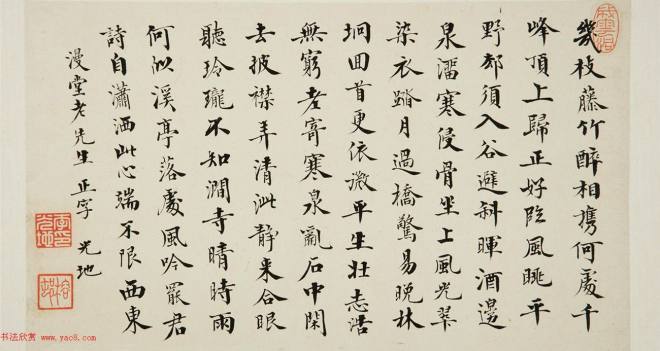 幾枝藤竹醉相攜何處千
峰頂上歸正好臨風眺平
野却須入谷避斜暉酒邊
泉溜寒侵骨坐上風光翠
染衣踏月過橋驚易晚林
坰回首更依微平生壯志浩
無窮老寄寒泉亂石中閑
去披襟弄清泚靜來合眼
聽玲瓏不知澗寺晴時雨
何似溪亭落處風吟罷君
詩自瀟洒此心端不限西東
漫堂老先生正字 光地
李印光地
书法欣赏 www.yac8.com